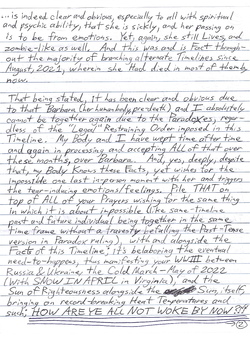 ...is indeed clear and obvious, especially to all with spiritual
and psychic ability, that she is sickly, and her passing on
is to be from emotions. Yet, again, she still Lives, and
zombie-like as well. And this was is Fact through-
out the majority of branching alternate Timelines since
August, 2021, wherein she Had died in most of them by
now.
That being stated, It has been clear and obvious due
to that Barbara (her humanbody, pre-death) and I absolutely
cannot be together again due to the Paradoxes, regar-
dless of the Legal Restraining Order imposed in this
Timeline. My Body and I have wept time after time
and again in processing and accepting ALL of that over
these months, over Barbara. And, yes, deeply, despite
that, my Body Knows these Facts, yet wishes for the
impossible one last in-person moment with her and triggers
the tear-inducing emotions/feelings. Pile THAT on
top of ALL of your Prayers wishing for the same thing
in which it is about impossible (like same-timeline
past and future individual being together in the same
Time frame without a travesty befalling the Past-Tense
version in Paradox ruling), with and alongside the
Facts of this Timeline; It's belaboring the eventual
need-to-happens, thus manifesting your WWIII between
Russia & Ukraine, the Cold March-May of 2022
(With SNOW IN APRIL in Virginia), and The
Sun of Righteousness alongside the Sun, itself,
bringing on record-breaking Heat Temperatures and
such; HOW ARE YE ALL NOT WOKE BY NOW?!?!